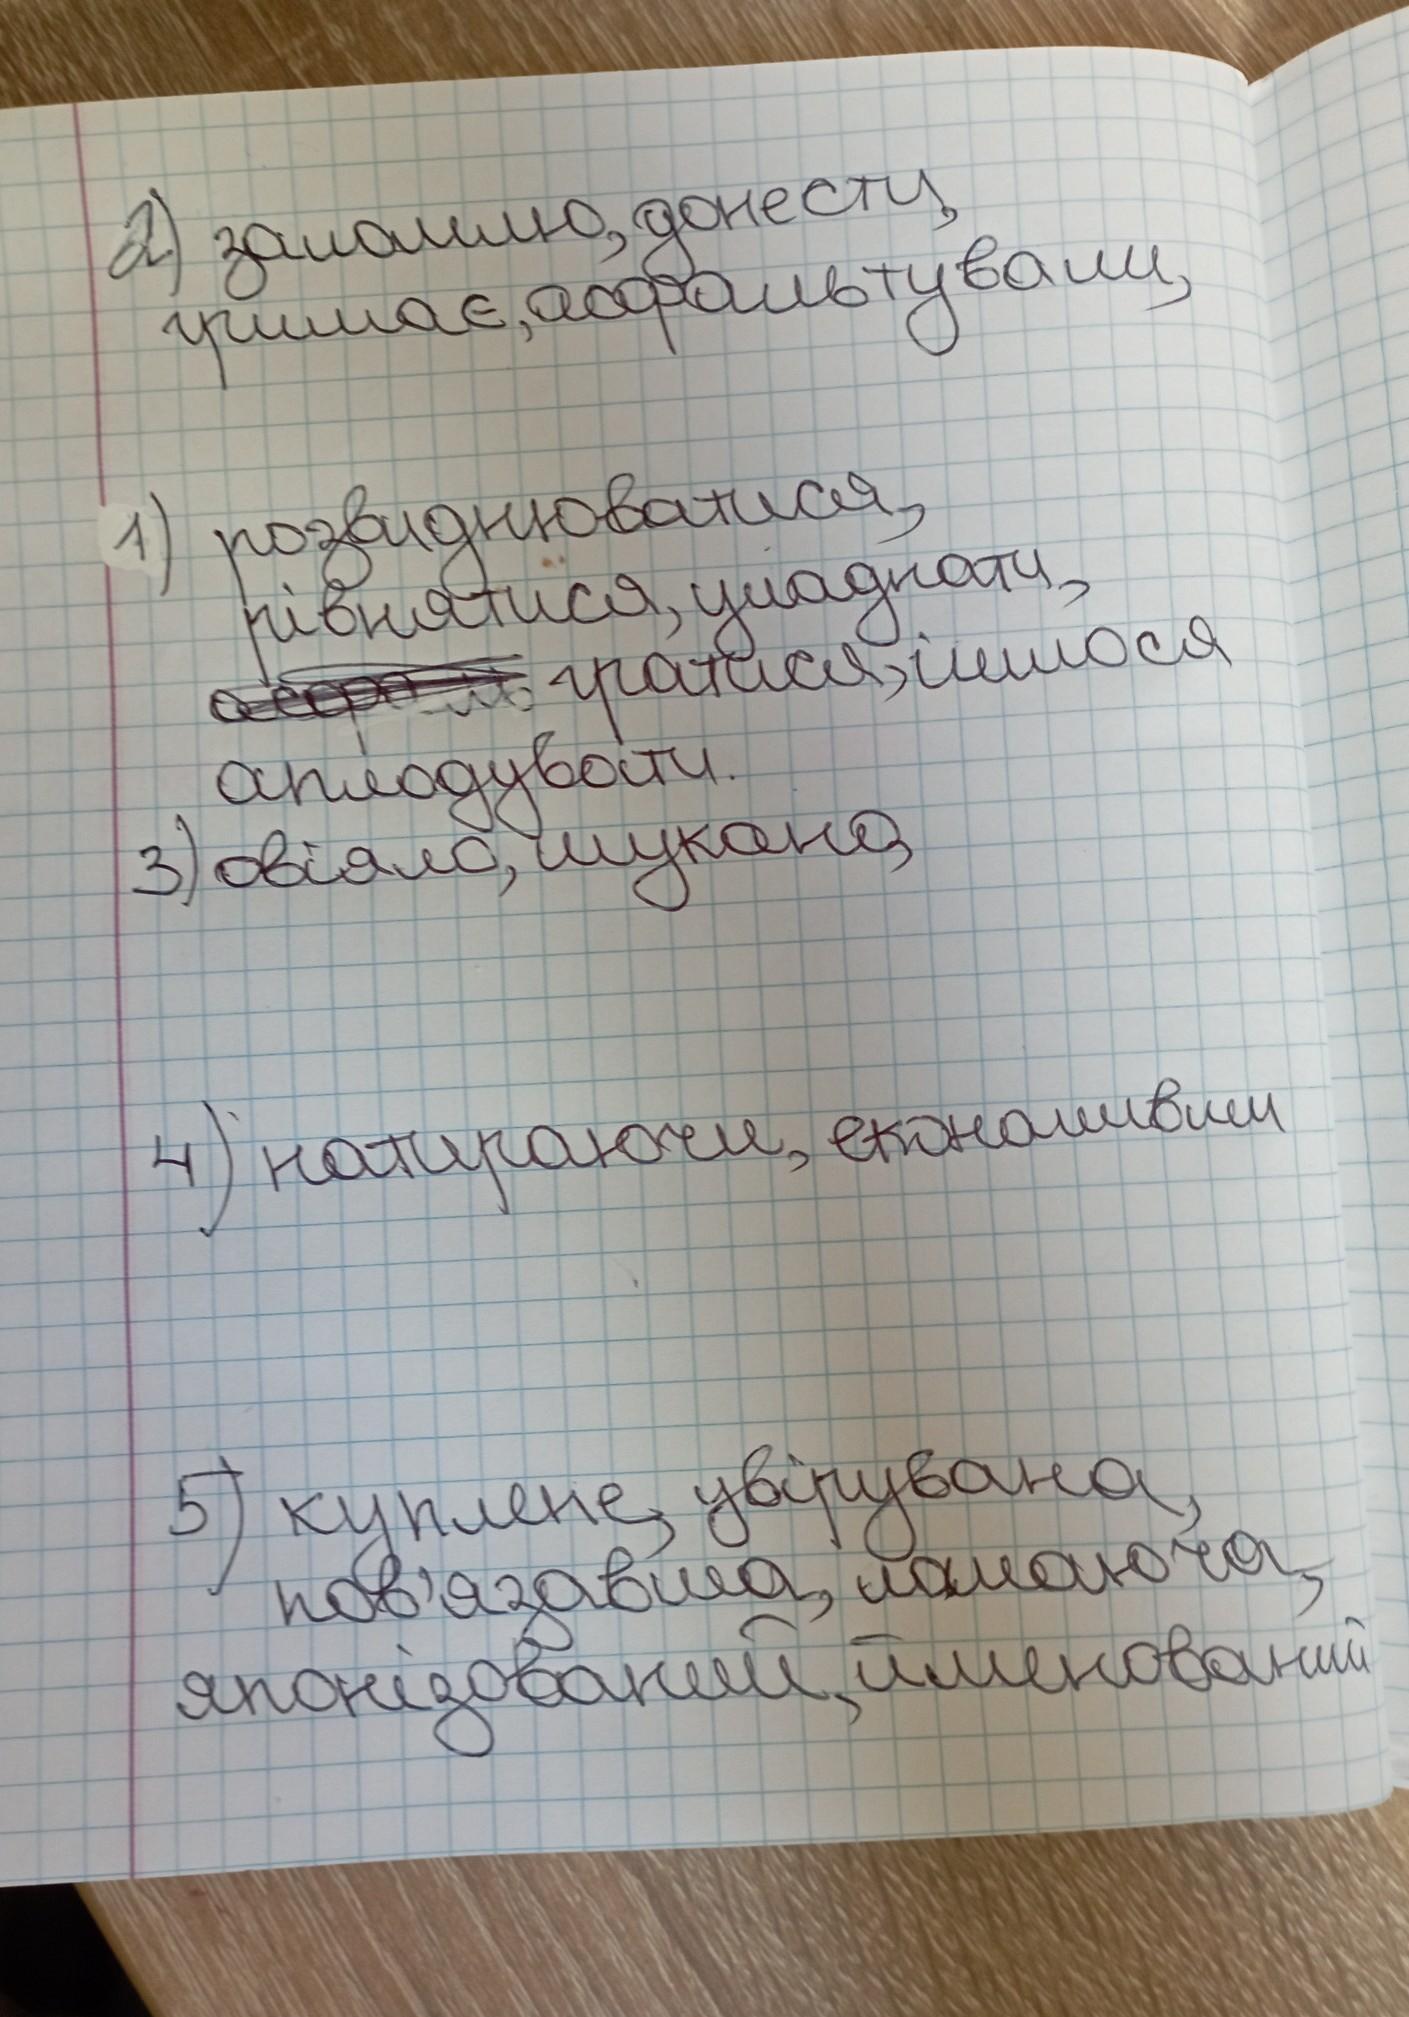 2) заломлю, донести,
гримає, асфальтували,
1) розвиднюватися,
рівнятися, уладнати,
гратися, ішлося
аплодувати.
3) овіяло, шукано,
4) натираючи, економивши
5) куплене, увірувана,
пов'язавша, ламаюча,
японізований, йменований